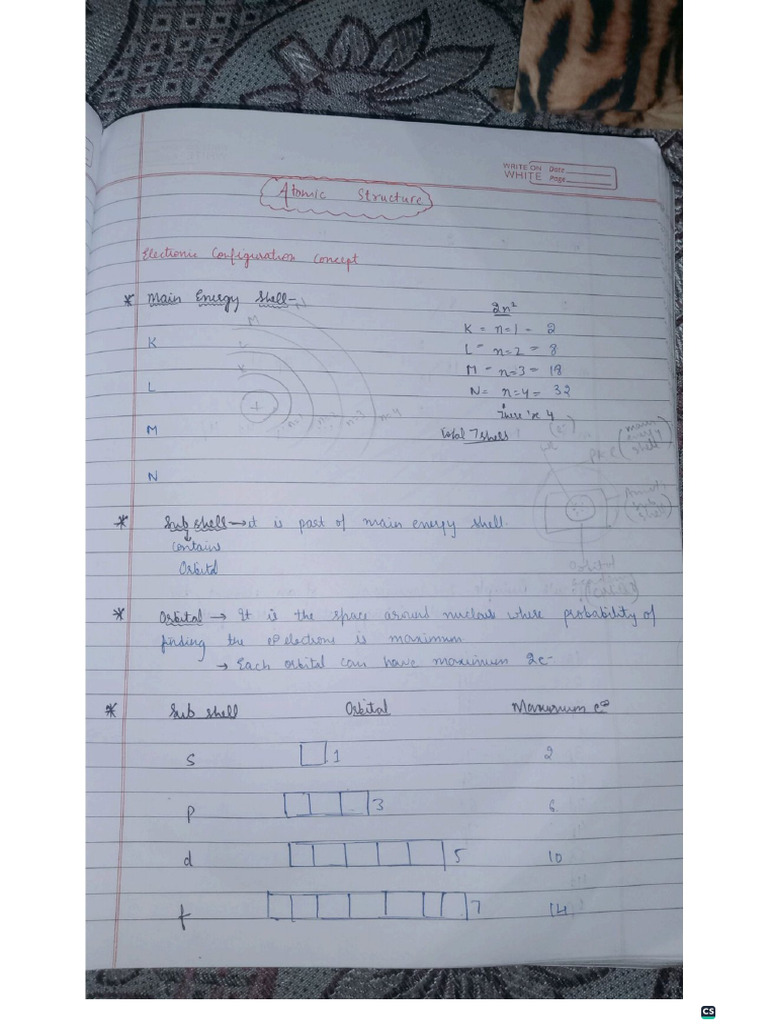 WRITE ON
WHITE
Date
Page
Atomic Structure
Electronic Configuration Concept
* Main Energy Shell-
K
L
M
N
N
M
L
K
+
n=1
n=2
n=3
n=4
2n²
K = n=1 = 2
L - n=2 = 8
M - n=3 = 18
N = n=4 = 32
Total 7 shells
(e-)
(main energy shell)
Orbital
* Sub shell → it is part of main energy shell.
↓
contains
Orbital
* Orbital → It is the space around nucleus where probability of
finding the electrons is maximum
→ Each orbital can have maximum 2e-
* Sub shell Orbital Maximum e-
s 1 2
p 3 6
d 5 10
f 7 14
CS